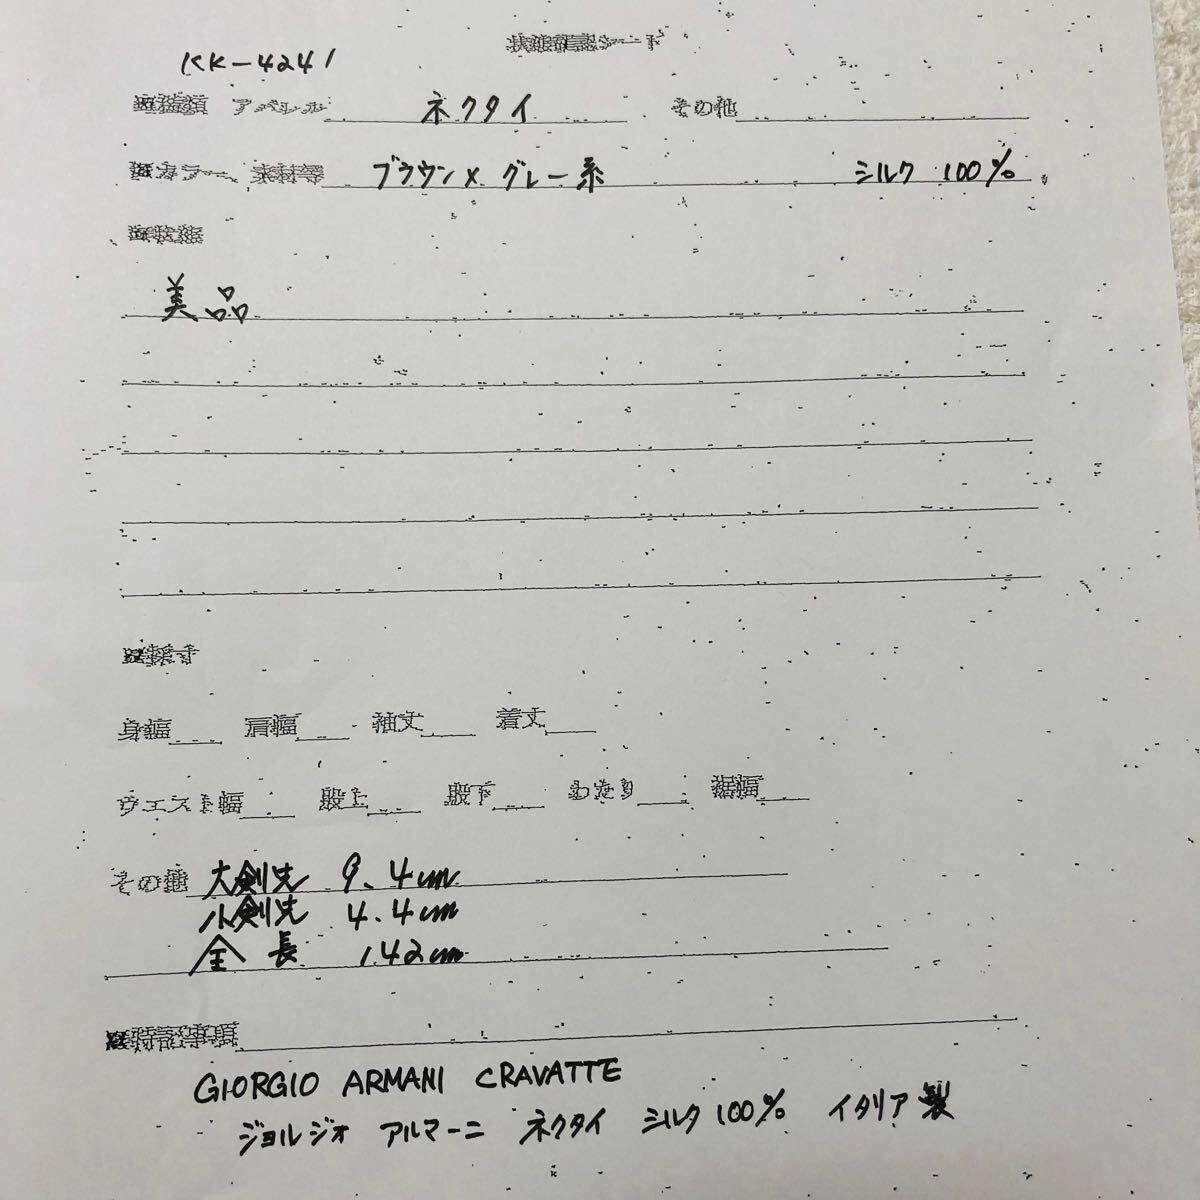 状態確認シート
KK-4241
☑種類 アパレル ネクタイ その他
☑カラー、素材等 ブラウン×グレー系 シルク 100%
☑状態
美品
☑採寸
身幅 肩幅 袖丈 着丈
ウエスト幅 股上 股下 わたり 裾幅
その他 大剣先 9.4cm
小剣先 4.4cm
全長 142cm
☑特記事項
GIORGIO ARMANI CRAVATTE
ジョルジオ アルマーニ ネクタイ シルク100% イタリア製